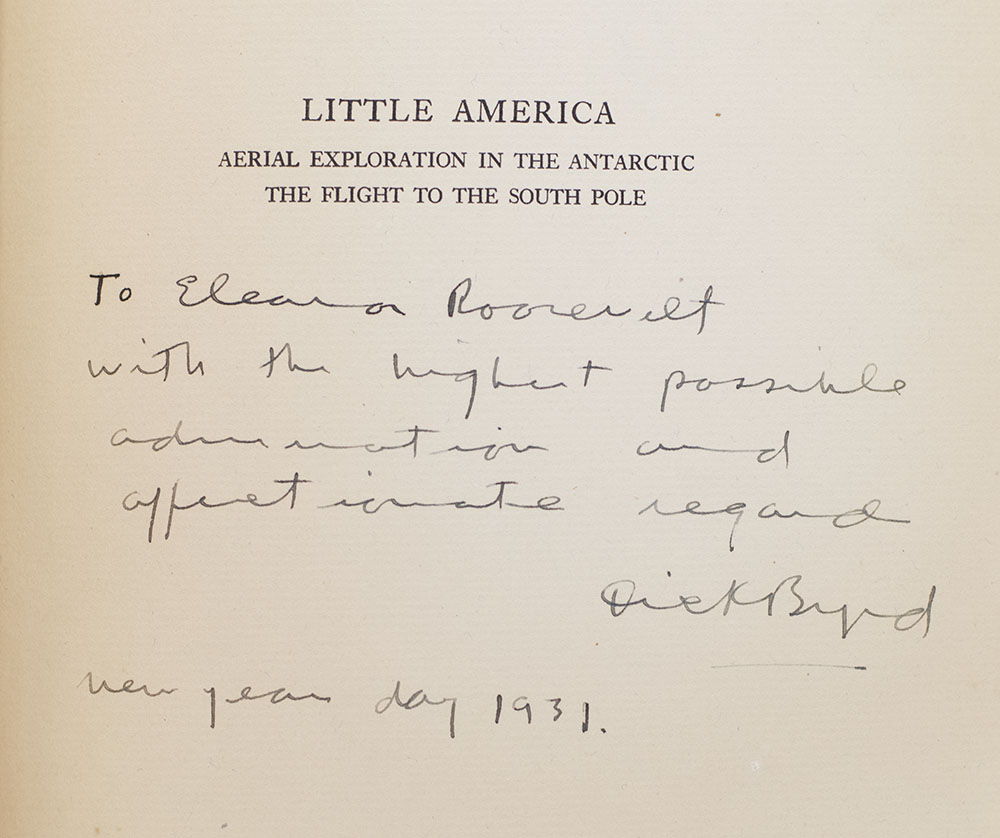 LITTLE AMERICA
AERIAL EXPLORATION IN THE ANTARCTIC
THE FLIGHT TO THE SOUTH POLE
To Eleanor Roosevelt
with the highest possible
admiration and
affectionate regard
Dick Byrd
new years day 1931.